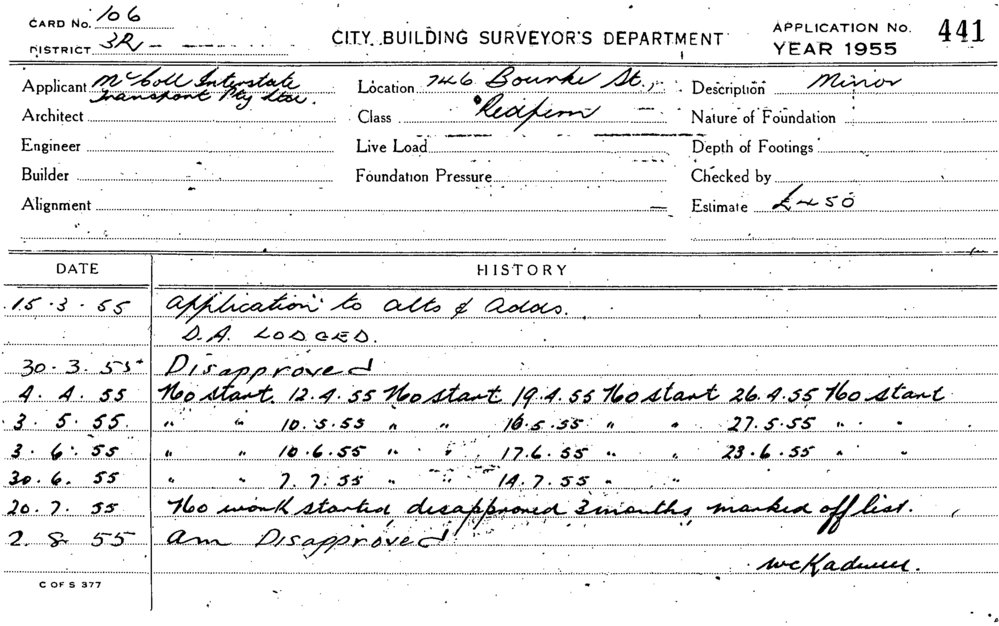 CARD No. 106
DISTRICT 3R
CITY BUILDING SURVEYOR'S DEPARTMENT
APPLICATION No. 441
YEAR 1955
Applicant McColl Interstate Transport Pty Ltd.
Location 746 Bourke St.,
Description Minor
Architect
Class Redfern
Nature of Foundation
Engineer
Live Load
Depth of Footings
Builder
Foundation Pressure
Checked by
Alignment
Estimate £450
DATE HISTORY
15.3.55 Application to alts & adds.
D.A. LODGED.
30.3.55 Disapproved
4.4.55 No start. 12.4.55 No start 19.4.55 No start 26.4.55 No start
3.5.55. " " 10.5.55 " " 16.5.55 " " 27.5.55 " "
3.6.55 " " 10.6.55 " " 17.6.55 " " 23.6.55 " "
30.6.55 " " 7.7.55 " " 14.7.55 " "
20.7.55 No work started, disapproved 3 months, marked off list.
2.8.55 am Disapproved
C OF S 377